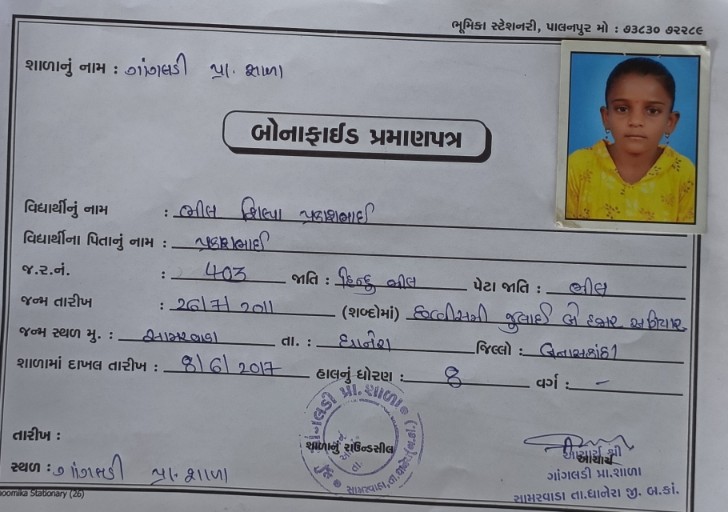 ભૂમિકા સ્ટેશનરી, પાલનપુર મો : ૭૩૮૩૦ ૭૨૨૮૯
શાળાનું નામ : ગાંગલડી પ્રા. શાળા
બોનાફાઈડ પ્રમાણપત્ર
વિદ્યાર્થીનું નામ : ભીલ શિલ્પા પ્રકાશભાઈ
વિદ્યાર્થીના પિતાનું નામ : પ્રકાશભાઈ
જ.ર.નં. : 403 જાતિ : હિન્દુ ભીલ પેટા જાતિ : ભીલ
જન્મ તારીખ : 26/7/2011 (શબ્દોમાં) છવ્વીસમી જુલાઈ બે હજાર અગિયાર
જન્મ સ્થળ મુ. : સામરવાડા તા. : ધાનેરા જિલ્લો : બનાસકાંઠા
શાળામાં દાખલ તારીખ : 8/6/2017 હાલનું ધોરણ : 8 વર્ગ : –
તારીખ :
શાળાનું રાઉન્ડસીલ
આચાર્ય શ્રી
આચાર્ય
સ્થળ : ગાંગલડી પ્રા. શાળા
ગાંગલડી પ્રા.શાળા
સામરવાડા તા.ધાનેરા જી. બ.કાં.
ગાંગલડી પ્રા. શાળા
oomika Stationary (26)